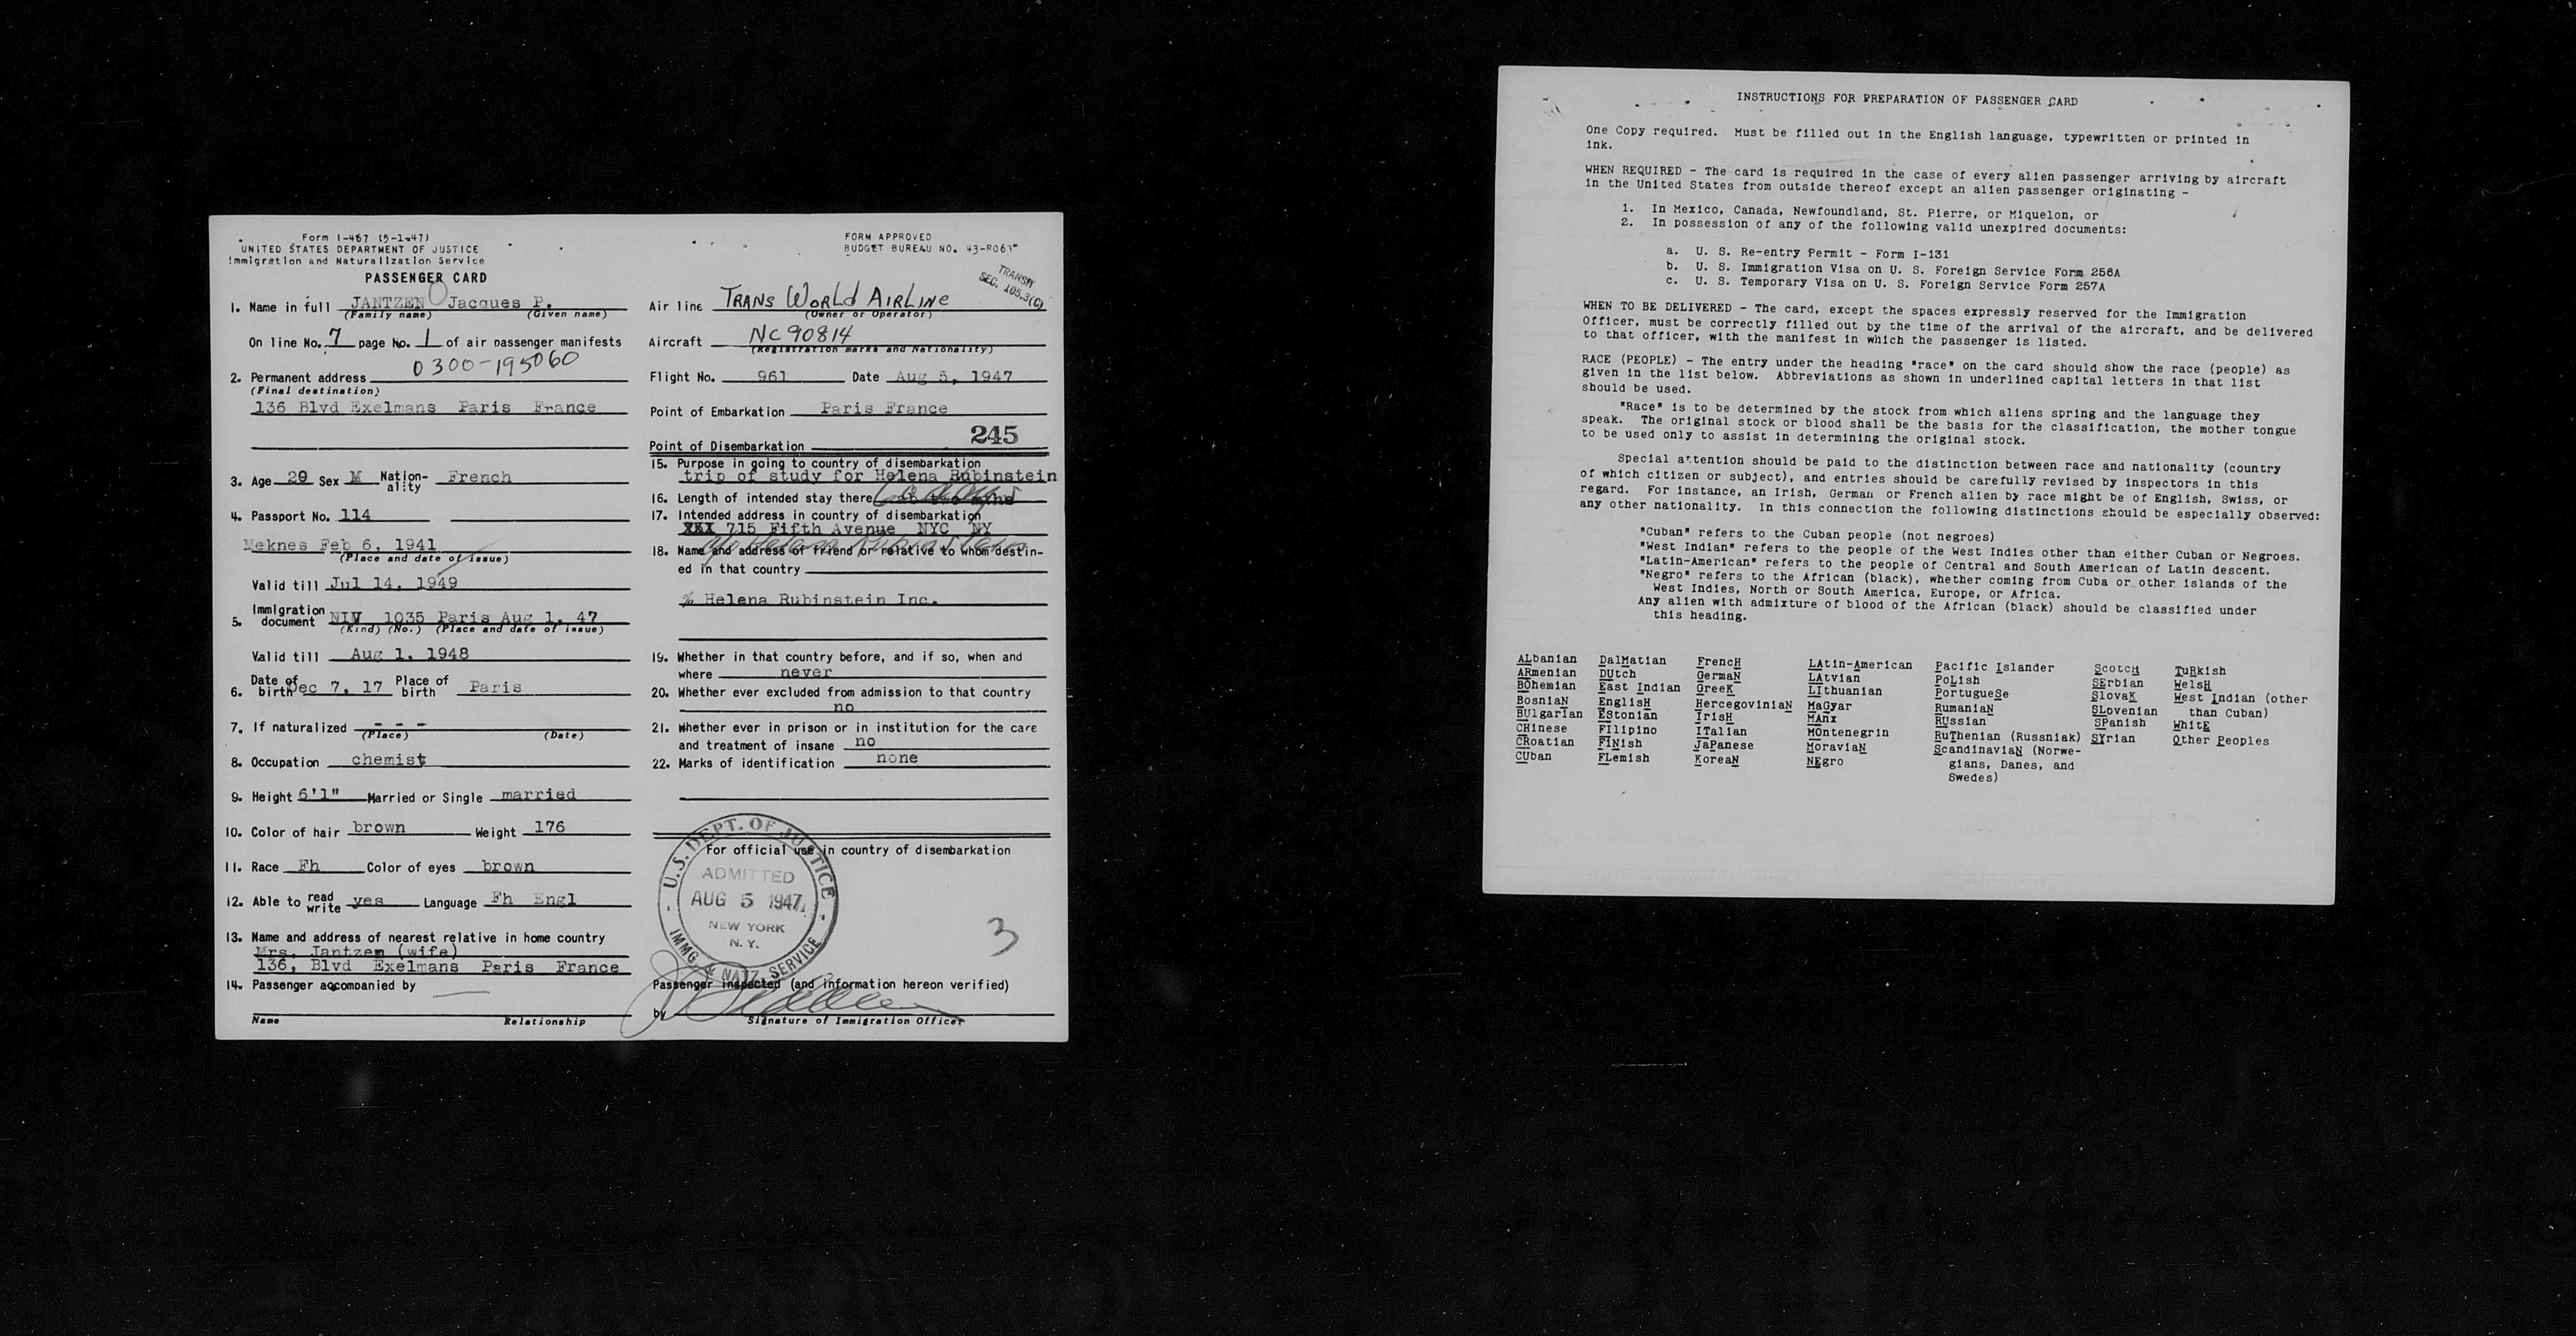 Form I-467 (5-1-47)
UNITED STATES DEPARTMENT OF JUSTICE
Immigration and Naturalization Service
PASSENGER CARD
FORM APPROVED
BUDGET BUREAU NO. 43-R063
TRANSIT
SEC. 105.3(C)
1. Name in full JANTZEN Jacques P.
(Family name) (Given name)
On line No. 7 page No. 1 of air passenger manifests
0300-195060
2. Permanent address
(Final destination)
136 Blvd Exelmans Paris France
3. Age 29 Sex M Nation-ality French
4. Passport No. 114
Meknes Feb 6, 1941
(Place and date of issue)
Valid till Jul 14, 1949
5. Immigration document NIV 1035 Paris Aug 1, 47
(Kind) (No.) (Place and date of issue)
Valid till Aug 1, 1948
6. Date of birth Dec 7, 17 Place of birth Paris
7. If naturalized - - -
(Place) (Date)
8. Occupation chemist
9. Height 6'1" Married or Single married
10. Color of hair brown Weight 176
11. Race Fh Color of eyes brown
12. Able to read write yes Language Fh Engl
13. Name and address of nearest relative in home country
Mrs. Jantzen (wife)
136, Blvd Exelmans Paris France
14. Passenger accompanied by —
Name Relationship
Air line TRANS WORLD AIRLINE
(Owner or Operator)
Aircraft NC 90814
(Registration marks and Nationality)
Flight No. 961 Date Aug 5, 1947
Point of Embarkation Paris France
245
Point of Disembarkation
15. Purpose in going to country of disembarkation
trip of study for Helena Rubinstein
16. Length of intended stay there
17. Intended address in country of disembarkation
XXX 715 Fifth Avenue NYC NY
c/o Helena Rubinstein
18. Name and address of friend or relative to whom destin-
ed in that country
% Helena Rubinstein Inc.
19. Whether in that country before, and if so, when and
where never
20. Whether ever excluded from admission to that country
no
21. Whether ever in prison or in institution for the care
and treatment of insane no
22. Marks of identification none
For official use in country of disembarkation
U.S. DEPT. OF JUSTICE
ADMITTED
AUG 5 1947
NEW YORK
N. Y.
IMMG. & NATZ. SERVICE
3
Passenger inspected (and information hereon verified)
by
Signature of Immigration Officer
INSTRUCTIONS FOR PREPARATION OF PASSENGER CARD
One Copy required. Must be filled out in the English language, typewritten or printed in
ink.
WHEN REQUIRED - The card is required in the case of every alien passenger arriving by aircraft
in the United States from outside thereof except an alien passenger originating -
1. In Mexico, Canada, Newfoundland, St. Pierre, or Miquelon, or
2. In possession of any of the following valid unexpired documents:
a. U. S. Re-entry Permit - Form I-131
b. U. S. Immigration Visa on U. S. Foreign Service Form 256A
c. U. S. Temporary Visa on U. S. Foreign Service Form 257A
WHEN TO BE DELIVERED - The card, except the spaces expressly reserved for the Immigration
Officer, must be correctly filled out by the time of the arrival of the aircraft, and be delivered
to that officer, with the manifest in which the passenger is listed.
RACE (PEOPLE) - The entry under the heading "race" on the card should show the race (people) as
given in the list below. Abbreviations as shown in underlined capital letters in that list
should be used.
"Race" is to be determined by the stock from which aliens spring and the language they
speak. The original stock or blood shall be the basis for the classification, the mother tongue
to be used only to assist in determining the original stock.
Special attention should be paid to the distinction between race and nationality (country
of which citizen or subject), and entries should be carefully revised by inspectors in this
regard. For instance, an Irish, German or French alien by race might be of English, Swiss, or
any other nationality. In this connection the following distinctions should be especially observed:
"Cuban" refers to the Cuban people (not negroes)
"West Indian" refers to the people of the West Indies other than either Cuban or Negroes.
"Latin-American" refers to the people of Central and South American of Latin descent.
"Negro" refers to the African (black), whether coming from Cuba or other islands of the
West Indies, North or South America, Europe, or Africa.
Any alien with admixture of blood of the African (black) should be classified under
this heading.
ALbanian
ARmenian
BOhemian
BosniaN
BUlgarIan
CHinese
CRoatian
CUban
DalMatian
DUtch
East Indian
EnglisH
EStonian
FIlipino
FINish
FLemish
FrencH
GermaN
GreeK
HercegoviniaN
IrisH
ITalian
JaPanese
KoreaN
LAtin-American
LAtvian
LIthuanian
MaGyar
MAnx
MOntenegrin
MoraviaN
NEgro
Pacific Islander
PoLish
PortugueSe
RumaniaN
RUssian
RuThenian (Russniak)
ScandinaviaN (Norwe-
gians, Danes, and
Swedes)
ScotcH
SErbian
SlovaK
SLovenian
SPanish
SYrian
TuRkish
WelsH
West Indian (other
than Cuban)
WhitE
Other Peoples